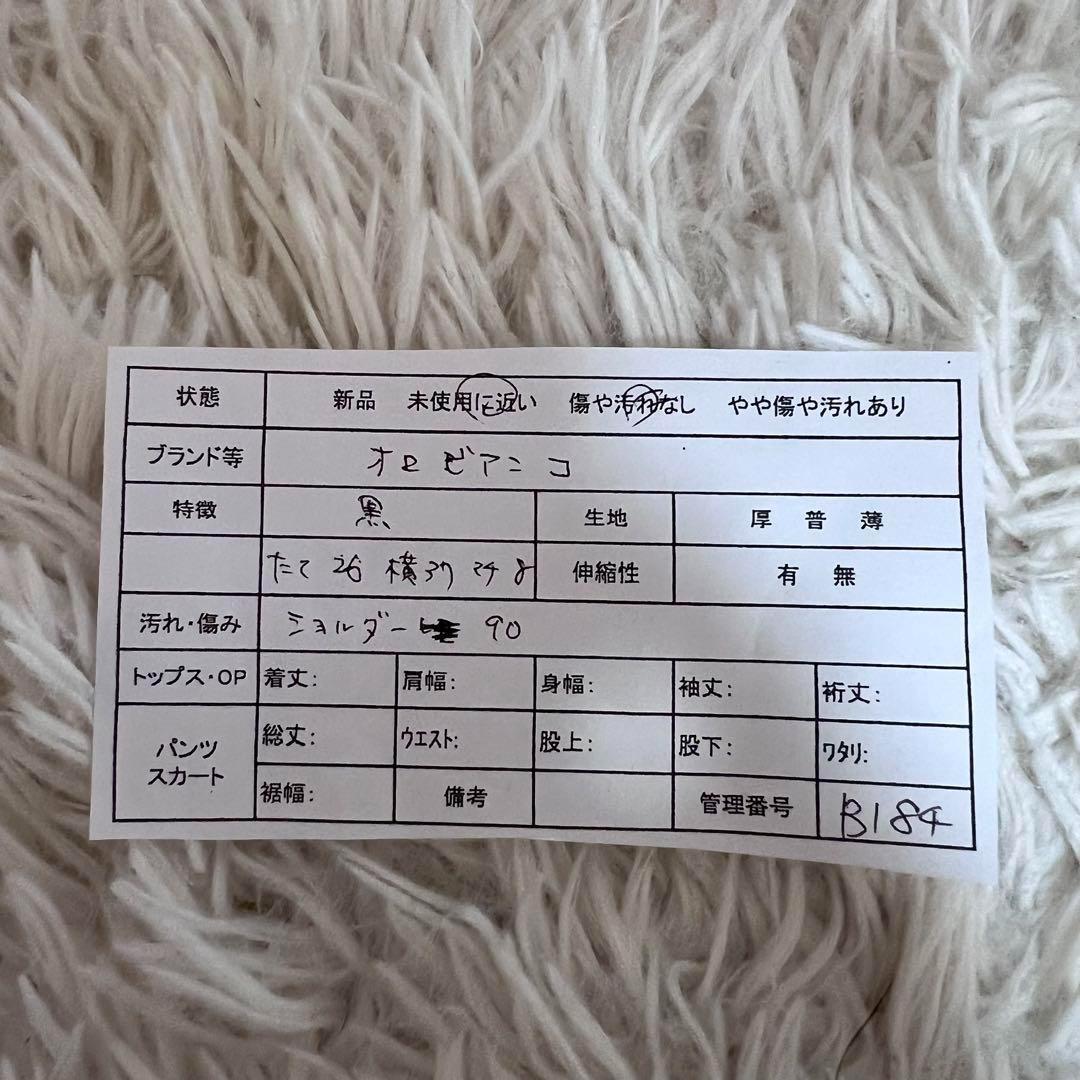 状態 新品 未使用に近い 傷や汚れなし やや傷や汚れあり
ブランド等 オロビアンコ
特徴 黒 生地 厚 普 薄
たて 26 横 伸縮性 有 無
汚れ・傷み ショルダー 90
トップス・OP 着丈: 肩幅: 身幅: 袖丈: 裄丈:
パンツ スカート 総丈: ウエスト: 股上: 股下: ワタリ:
裾幅: 備考 管理番号 B184